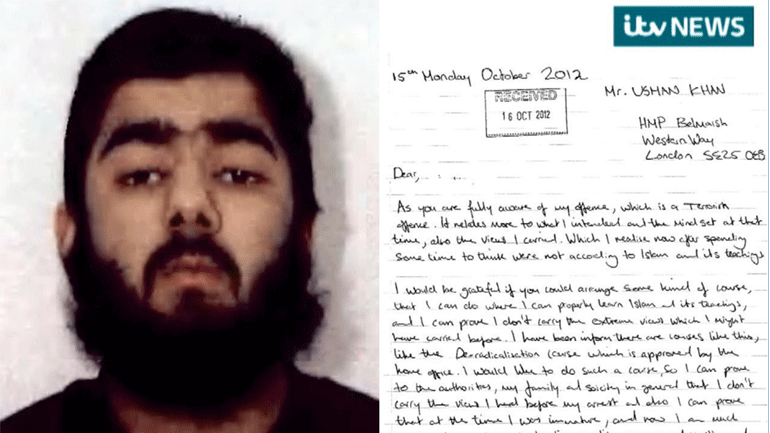 itv NEWS
15th Monday October 2012
RECEIVED
16 OCT 2012
Mr. USMAN KHAN
HMP Belmarsh
Western Way
London SE25 0EB
Dear,
As you are fully aware of my offence, which is a Terrorist
offence. It relates more to what I intended and the mind set at that
time, also the views I carried. Which I realise now after spending
some time to think were not according to Islam and its teachings
I would be grateful if you could arrange some kind of course,
that I can do where I can properly learn Islam and its teachings,
and I can prove I don't carry the extreme views which I might
have carried before. I have been inform there are courses like this,
like the Deradicalisation course which is approved by the
home office. I would like to do such a course, so I can prove
to the authorities, my family and soicity in general that I don't
carry the views I had before my arrest and also I can prove
that at the time I was immature, and now I am much